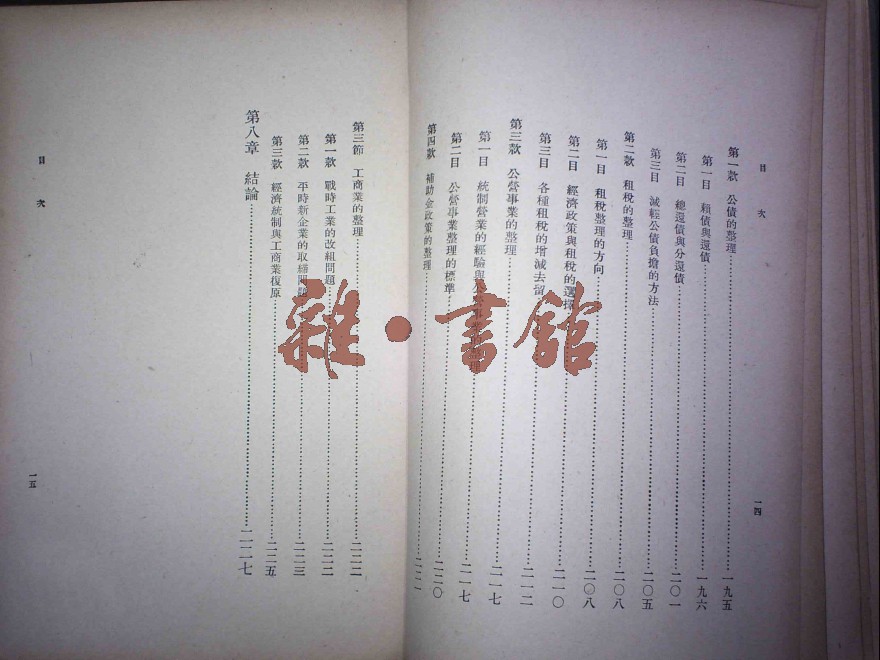 目次
第一款 公債的整理……一九五
第一目 賴債與還債……一九六
第二目 總還債與分還債……二〇一
第三目 減輕公債負擔的方法……二〇五
第二款 租稅的整理……二〇八
第一目 租稅整理的方向……二〇八
第二目 經濟政策與租稅的選擇……二一〇
第三目 各種租稅的增減去留……二一二
第三款 公營事業的整理……二一七
第一目 統制營業的經驗與……二一七
第二目 公營事業整理的標準……二二〇
第四款 補助金政策的整理……二二一
一四
第三節 工商業的整理……二二二
第一款 戰時工業的改組問題……二二二
第二款 平時新企業的取締問題……二二三
第三款 經濟統制與工商業復原……二二五
第八章 結論……二二七
目次
一五
雜·書館